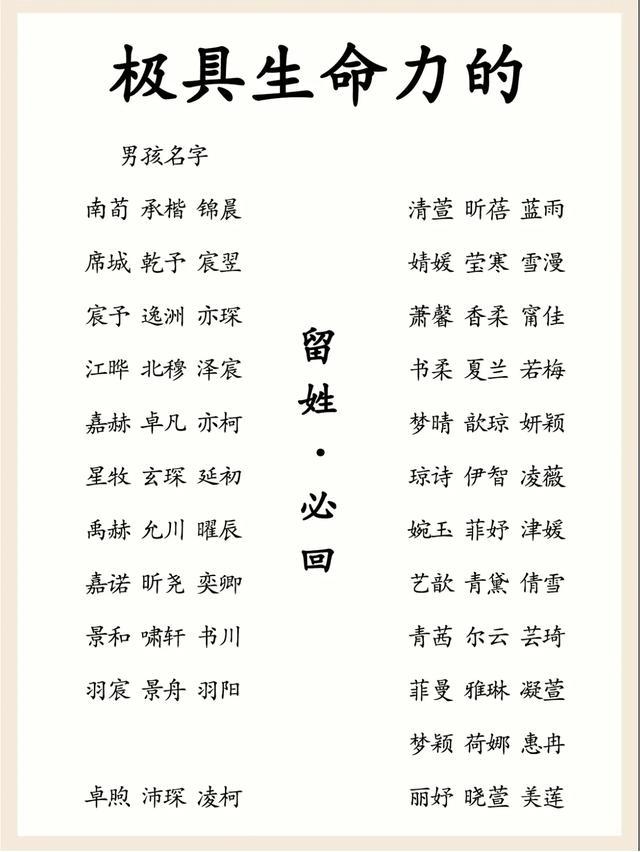 极具生命力的
男孩名字
南荀 承楷 锦晨
席城 乾予 宸翌
宸予 逸洲 亦琛
江晔 北穆 泽宸
嘉赫 卓凡 亦柯
星牧 玄琛 延初
禹赫 允川 曜辰
嘉诺 昕尧 奕卿
景和 啸轩 书川
羽宸 景舟 羽阳
卓煦 沛琛 凌柯
留姓·必回
清萱 昕蓓 蓝雨
婧媛 莹寒 雪漫
萧馨 香柔 甯佳
书柔 夏兰 若梅
梦晴 歆琼 妍颖
琼诗 伊智 凌薇
婉玉 菲妤 津媛
艺歆 青黛 倩雪
青茜 尔云 芸琦
菲曼 雅琳 凝萱
梦颖 荷娜 惠冉
丽妤 晓萱 美莲